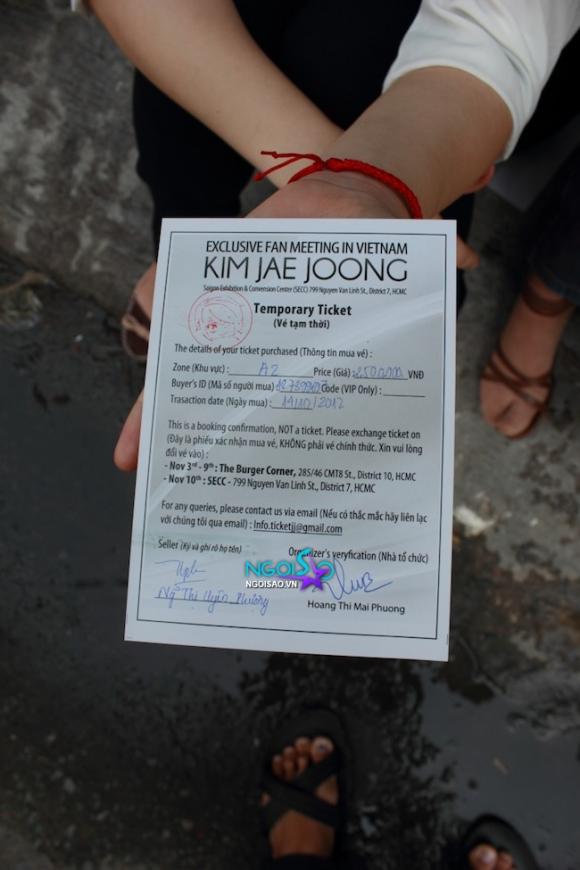 EXCLUSIVE FAN MEETING IN VIETNAM
KIM JAE JOONG
Saigon Exhibition & Convension Center (SECC) 799 Nguyen Van Linh St., District 7, HCMC
Temporary Ticket
(Vé tạm thời)
The details of your ticket purchased (Thông tin mua vé) :
Zone (Khu vực) : A2 Price (Giá) : VNĐ
Buyer's ID (Mã số người mua) Code (VIP Only) :
Trasaction date (Ngày mua) : 14/10/2012
This is a booking confirmation, NOT a ticket. Please exchange ticket on
(Đây là phiếu xác nhận mua vé, KHÔNG phải vé chính thức. Xin vui lòng
đổi vé vào) :
- Nov 3rd - 9th : The Burger Corner, 285/46 CMT8 St., District 10, HCMC
- Nov 10th : SECC - 799 Nguyen Van Linh St., District 7, HCMC
For any queries, please contact us via email (Nếu có thắc mắc hãy liên lạc
với chúng tôi qua email) : Info.ticketjj@gmail.com
Seller (Ký và ghi rõ họ tên) Organizer's veryfication (Nhà tổ chức)
NGOISAO
NGOISAO.VN
Ngô Thị Uyên Phương Hoang Thi Mai Phuong